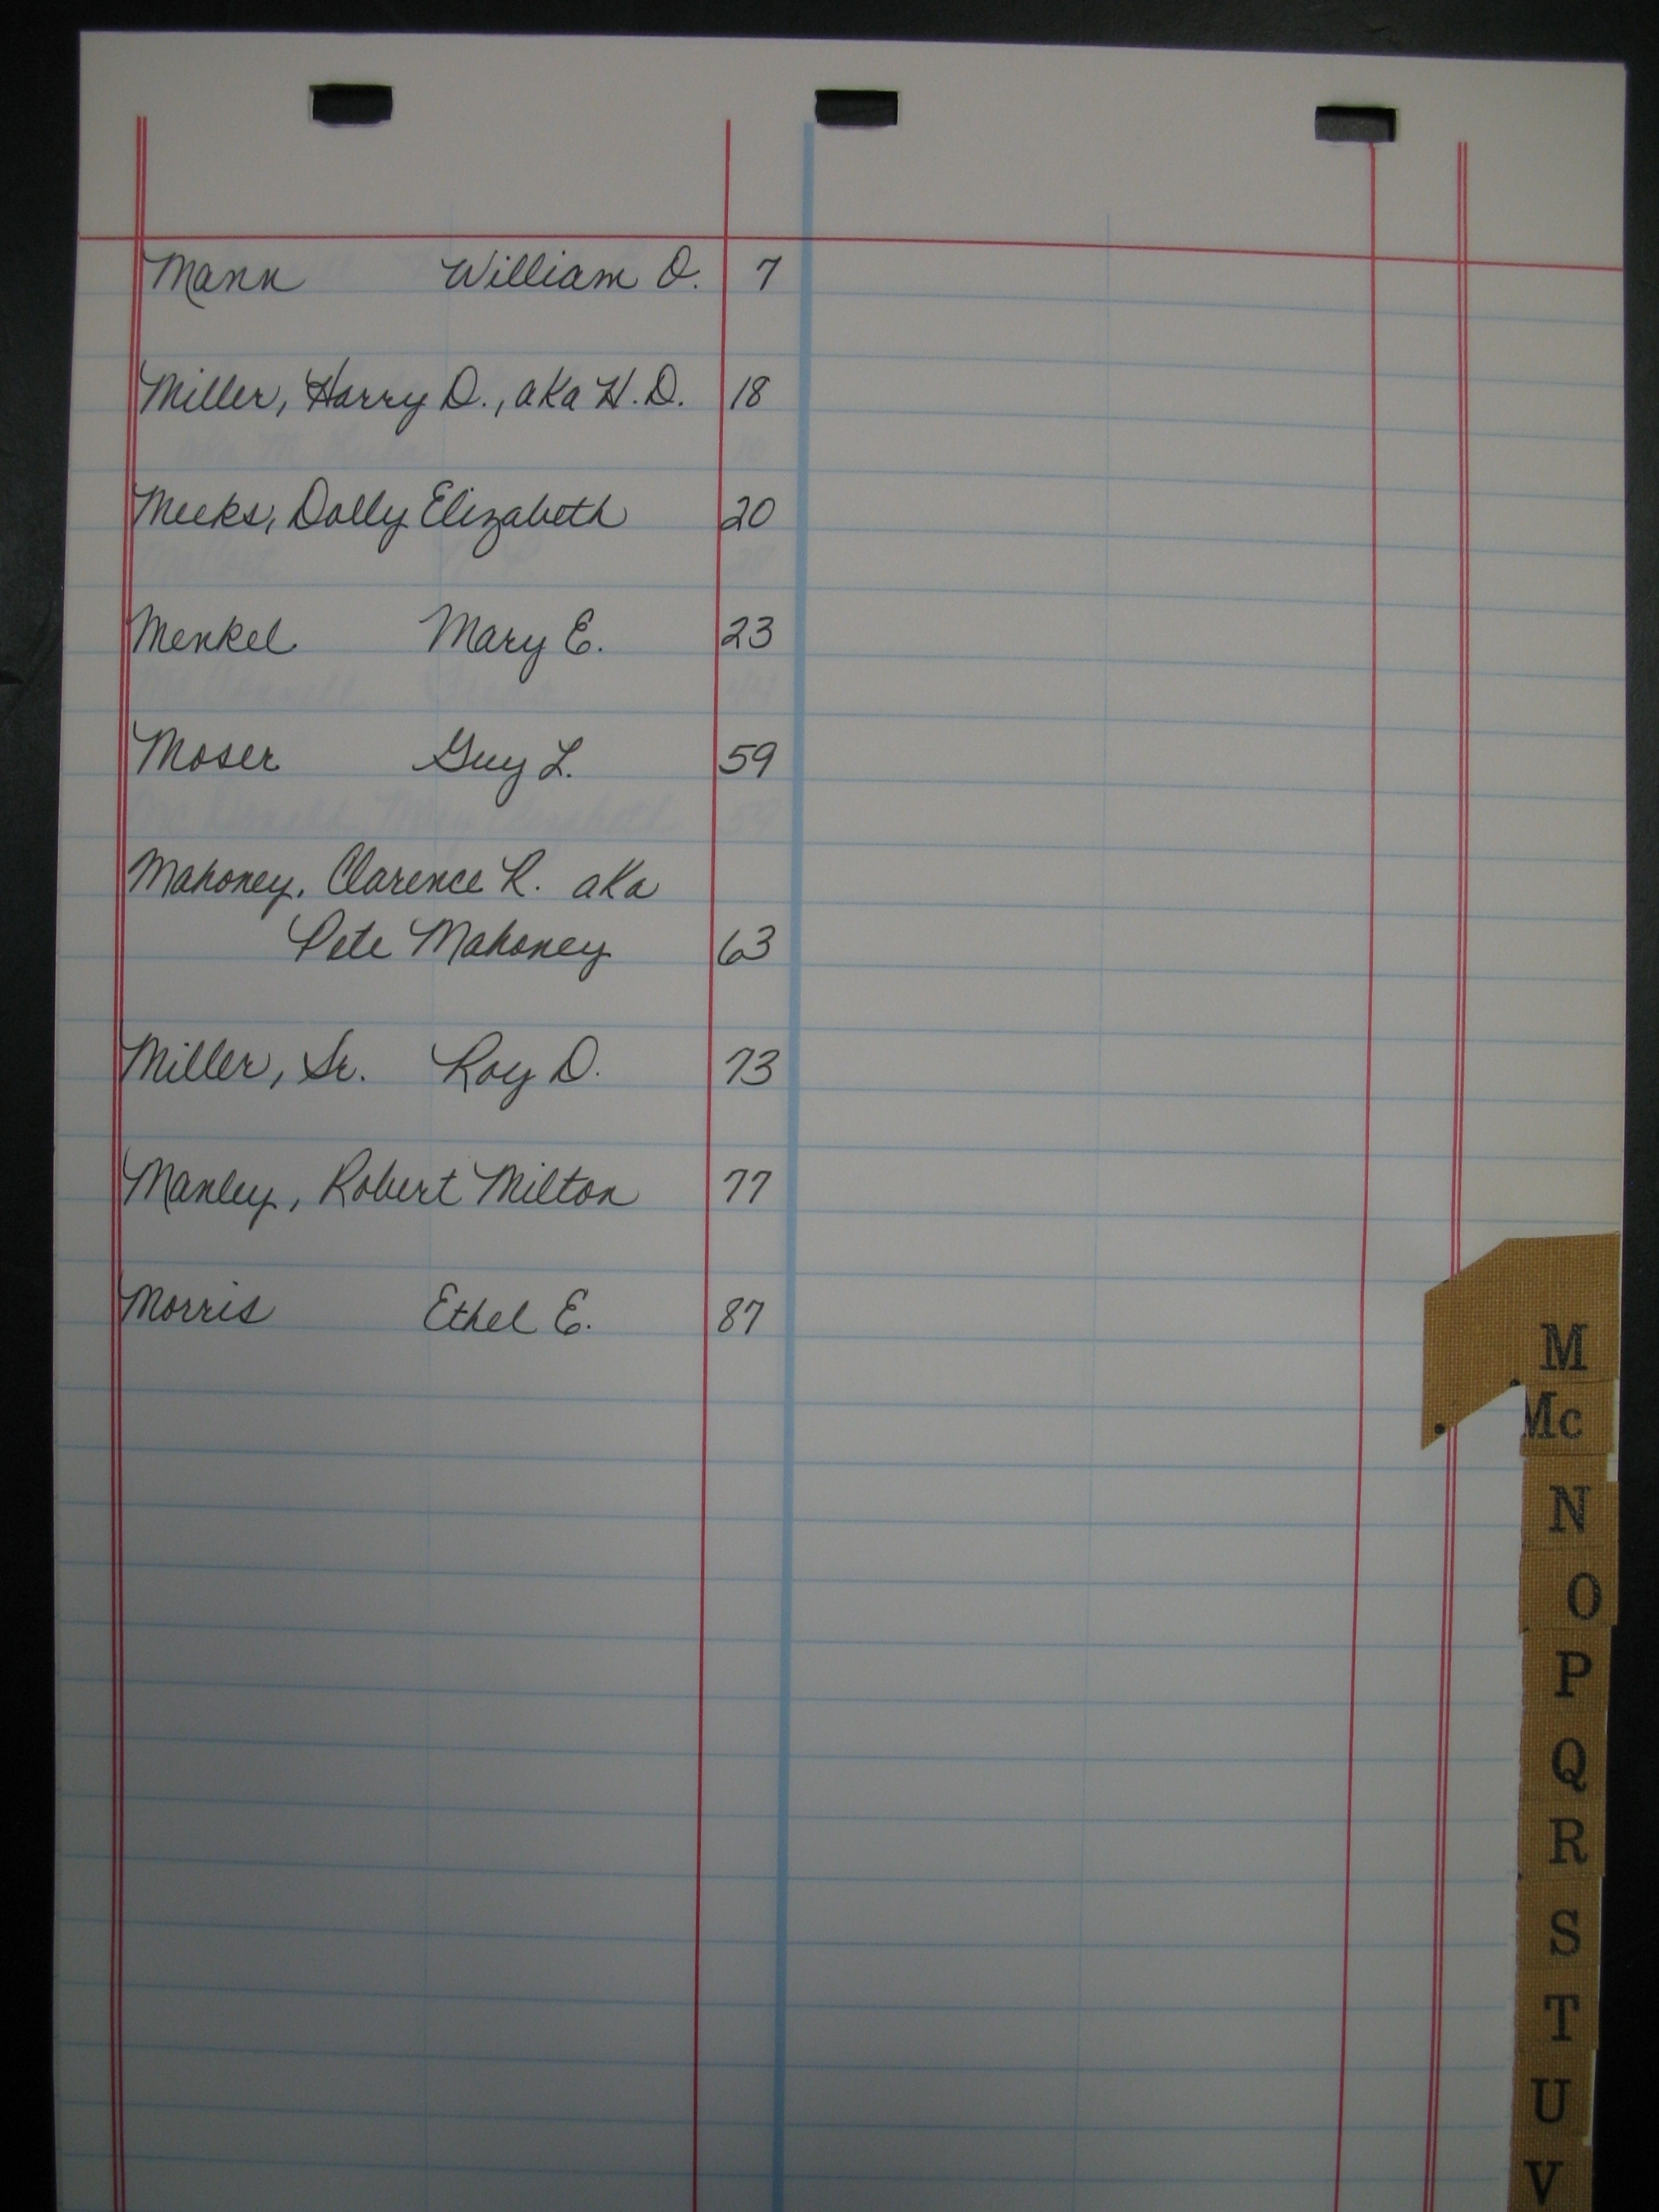 Mann William O. 7
Miller, Harry D., aka H.D. 18
Meeks, Dolly Elizabeth 20
Menkel Mary E. 23
Moser Guy L. 59
Mahoney, Clarence R. aka
Pete Mahoney 63
Miller, Sr. Roy D. 73
Manley, Robert Milton 77
Morris Ethel E. 87
M
Mc
N
O
P
Q
R
S
T
U
V